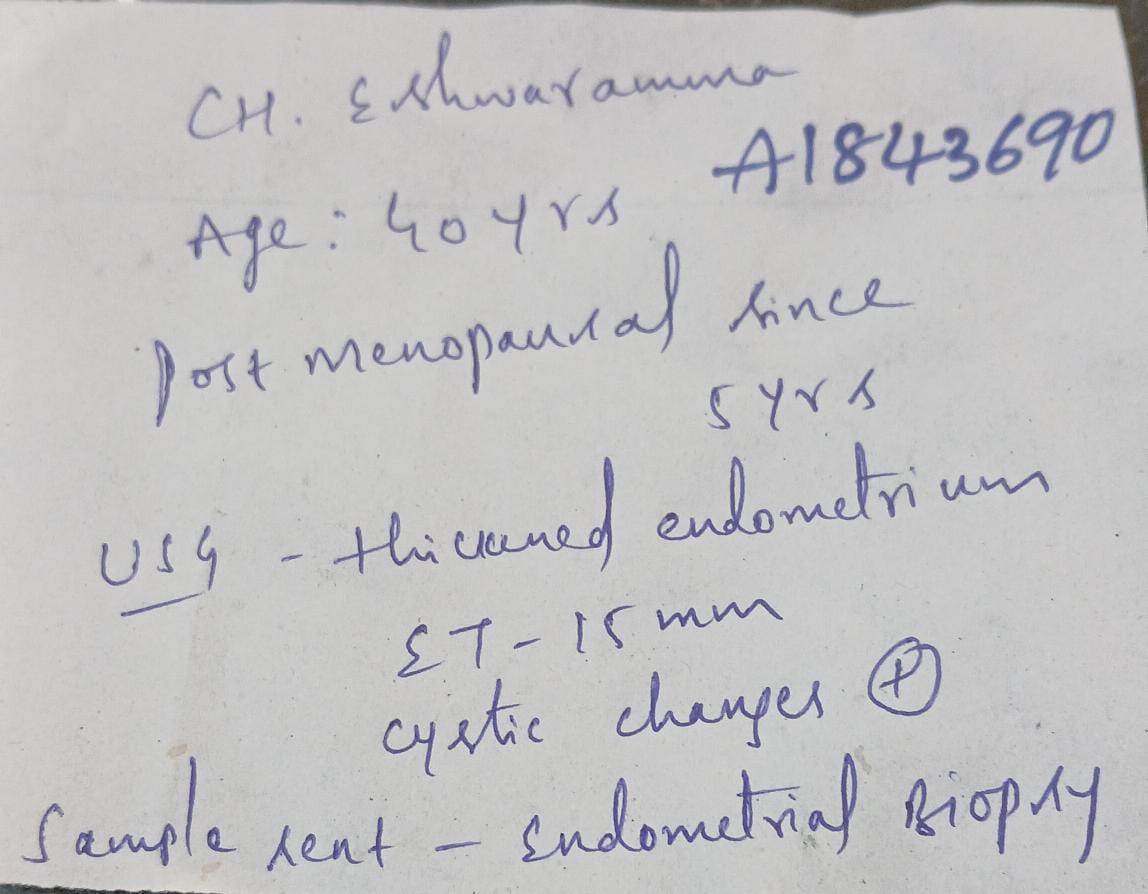 CH. Eshwaramma
A1843690
Age: 40 yrs
Post menopausal since
5 yrs
USG - thickened endometrium
ET - 15 mm
cystic changes ⊕
Sample sent - Endometrial Biopsy